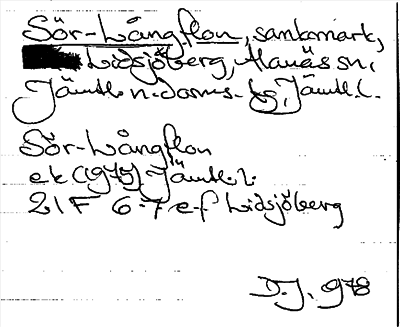 Sör-Långflon, sankmark,
Lidsjöberg, Alanäs sn,
Jämtl. n. doms-sg, Jämtl. l.
Sör-Långflon
ek (1975) Jämtl. l.
21F 6-7 e-f Lidsjöberg
D.J. 1978